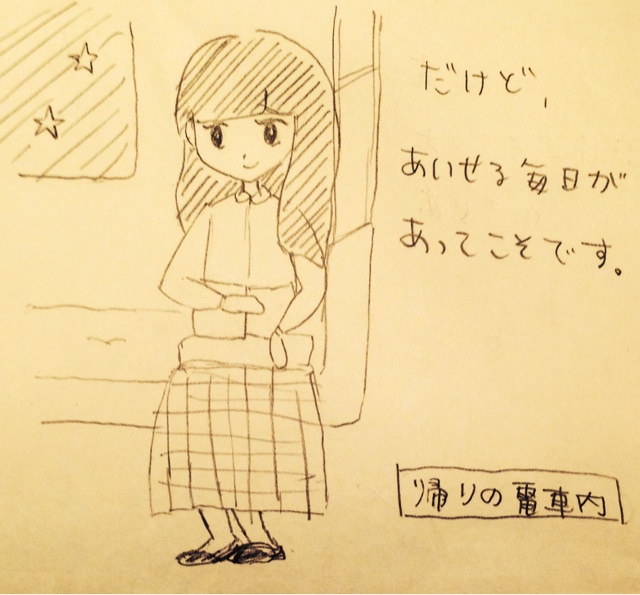 だけど、
あいせる毎日が
あってこそです。
帰りの電車内